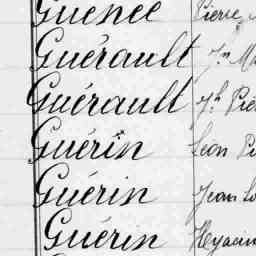 Guenée Pierre
Guérault Jn
Guérault Jh
Guérin Léon
Guérin Jean
Guérin Hyacin